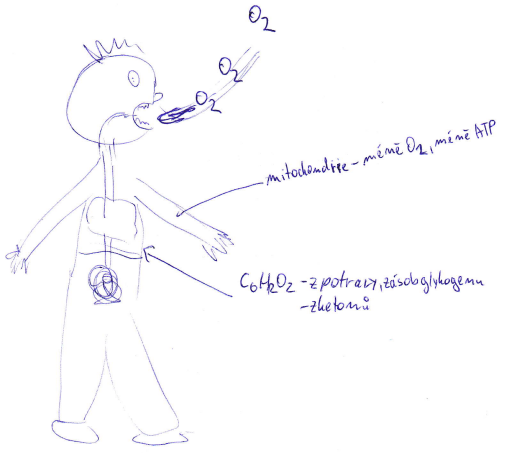 O2
O2
O2
mitochondrie - méně O2, méně ATP
C6H2O2 - z potravy, zásob glykogenu
- z ketonů